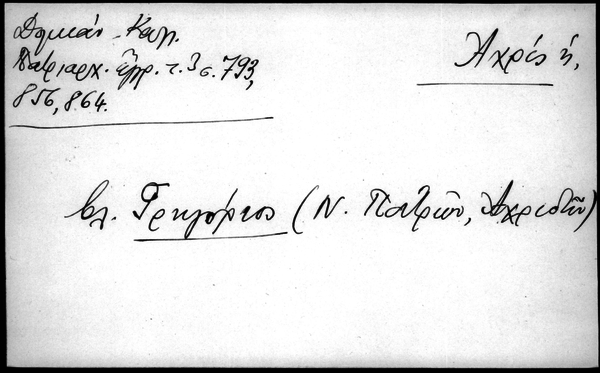 Δηλικάν. Καλ.
Πατριαρχ. ἔγγρ. τ. 3 σ. 793,
856, 864.
Ἀχρίς ἡ.
βλ. Γρηγόριος (Ν. Πατρῶν, Ἀχριδῶν)